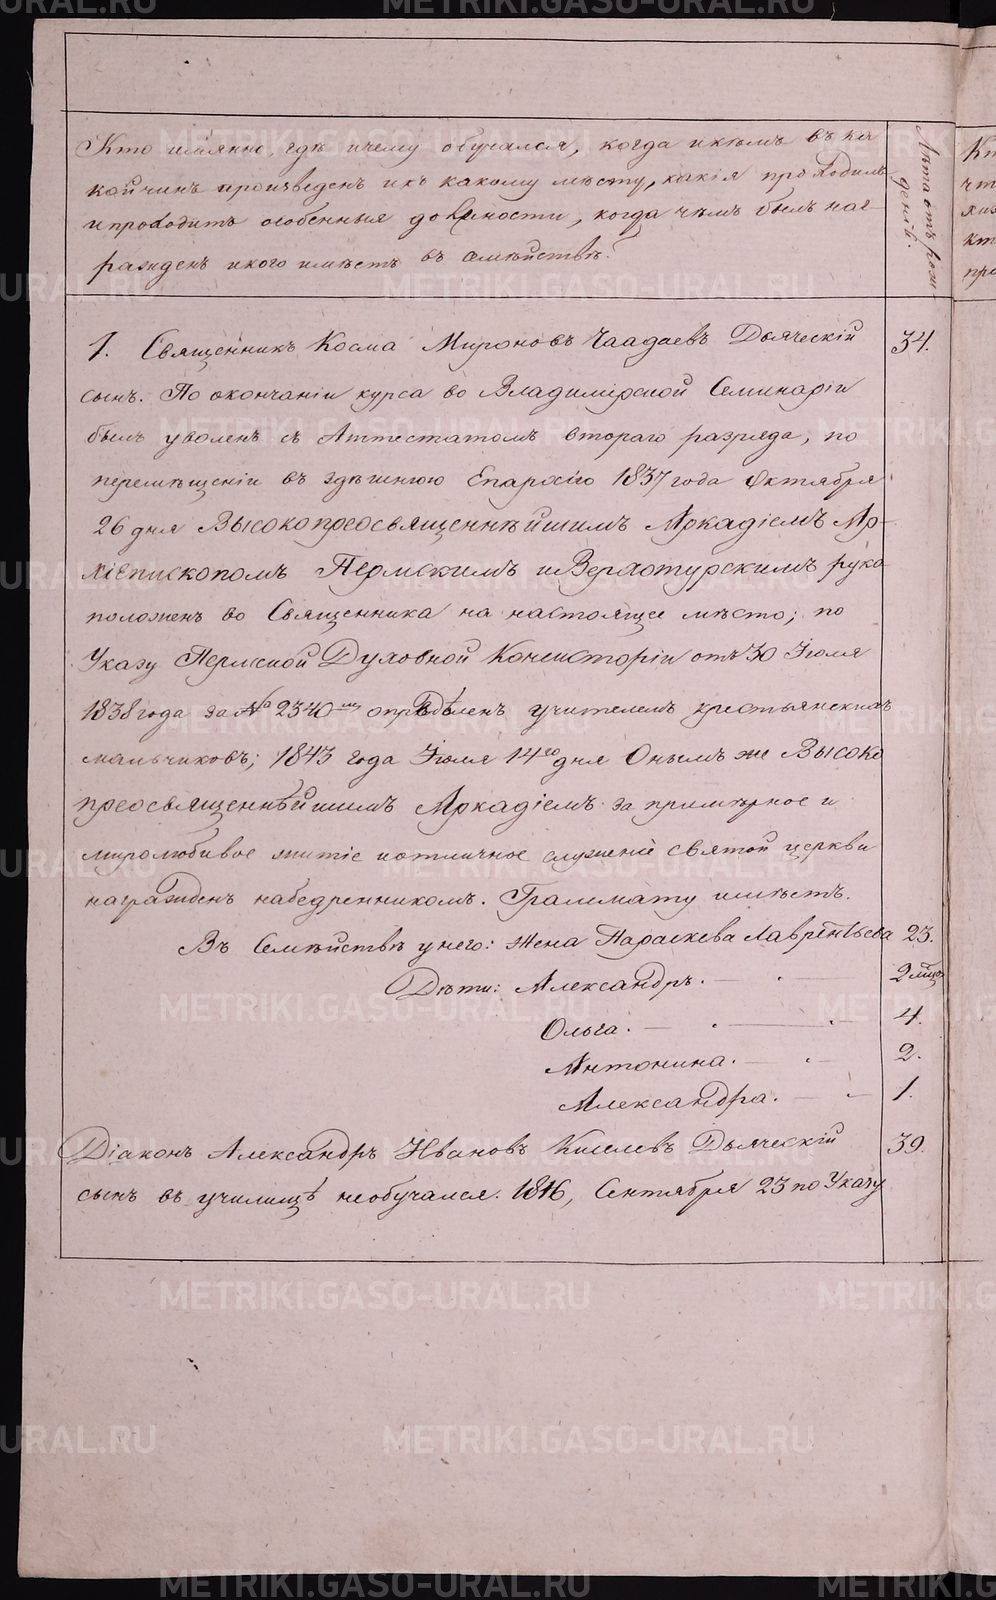 Кто имянно, гдѣ и чему обучался, когда и кѣмъ въ ка
кой чинъ произведенъ и къ какому мѣсту, какія проходилъ
и проходитъ особенныя должности, когда чѣмъ былъ наг
ражденъ и кого имѣетъ въ семѣйствѣ?
Лѣта отъ рож
денія.
1. Священникъ Косма Мироновъ Чаадаевъ Дьяческій 34.
сынъ. По окончаніи курса во Владимірской Семинаріи
былъ уволенъ съ Аттестатомъ втораго разряда, по
перемѣщеніи въ здѣшнюю Епархію 1837 года Октября
26 дня Высокопреосвященнѣйшимъ Аркадіемъ Ар-
хіепископомъ Пермскимъ и Верхотурскимъ руко
положенъ во Священника на настоящее мѣсто; по
Указу Пермской Духовной Консисторіи отъ 30 Іюля
1838 года за № 2340мъ опредѣленъ учителемъ крестьянскихъ
мальчиковъ; 1843 года Іюля 14го дня Онымъ же Высоко
преосвященнѣйшимъ Аркадіемъ за примѣрное и
миролюбивое житіе и отличное служеніе святой церкви
награжденъ набедренникомъ. Граммату имѣетъ.
Въ Семѣйствѣ у него: жена Параскева Лаврентьева 23.
Дѣти: Александръ. 2 мѣц.
Ольга. 4.
Антонина. 2.
Александра. 1.
Діаконъ Александръ Ивановъ Киселевъ Дьяческій 39.
сынъ въ училищѣ необучался. 1816, Сентября 23 по Указу
METRIKI.GASO-URAL.RU